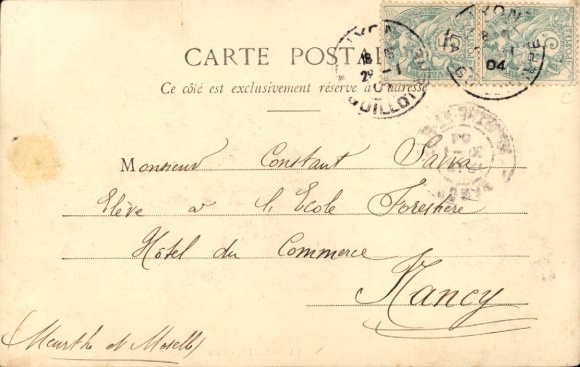 CARTE POSTALE
Ce côté est exclusivement réservé à l'adresse
LYON
GUILLOTIÈRE
04
5
Monsieur Constant
Elève à l'Ecole Forestière
Hôtel du Commerce
Nancy
Meurthe et Moselle